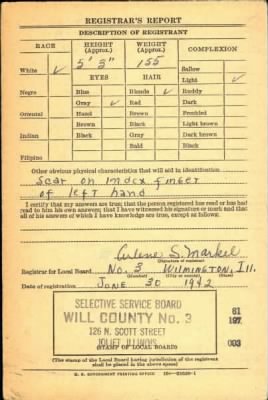 REGISTRAR'S REPORT
DESCRIPTION OF REGISTRANT
RACE HEIGHT (Approx.) WEIGHT (Approx.) COMPLEXION
5' 5" 155 Sallow
White ✓ EYES HAIR Light ✓
Negro Blue Blonde ✓ Ruddy
Gray ✓ Red Dark
Oriental Hazel Brown Freckled
Brown Black Light brown
Indian Black Gray Dark brown
Bald Black
Filipino
Other obvious physical characteristics that will aid in identification
Scar on index finger
of left hand
I certify that my answers are true; that the person registered has read or has had
read to him his own answers; that I have witnessed his signature or mark and that
all of his answers of which I have knowledge are true, except as follows:
Arlene S. Markel
(Signature of registrar)
Registrar for Local Board No. 3 WILMINGTON, Ill.
(Number) (City or county) (State)
Date of registration JUNE 30 1942
SELECTIVE SERVICE BOARD
WILL COUNTY No. 3
126 N. SCOTT STREET
JOLIET, ILLINOIS
61
197
003
(STAMP OF LOCAL BOARD)
(The stamp of the Local Board having jurisdiction of the registrant
shall be placed in the above space)
U. S. GOVERNMENT PRINTING OFFICE